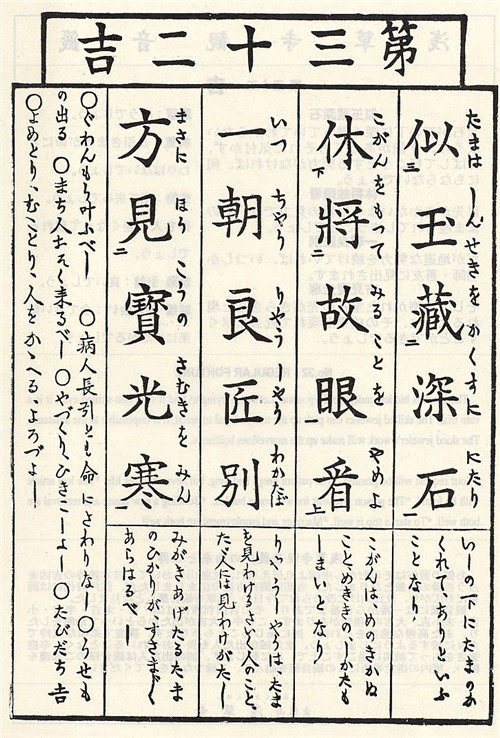 第三十二吉
たまは しんせきをかくすに にたり
似三玉藏二深石
いしの下にたまのか
くれてありといふ
ことなり
こがんをもて みることを やめよ
休下將二故眼一看上
こがんはめのきかぬ
ことめききのしかたも
しまいとなり
いつ ちやう りやうしやう わかたば
一朝良匠別
りやうしやうはたま
を見わけるさいく人のこと
たゞ人には見わけがたし
まさに ほうくわうの さむきを みん
方見二寶光寒一
みがきあげたるたま
のひかりがすさまじく
あらはるべし
○ぐわんもう叶ふべし ○病人長引とも命にさわりなし ○うせも
の出る ○まち人おそく来るべし ○やづくり、ひきこしよし ○たびだち吉
○よめとり、むことり、人をかゝへるよろづよし